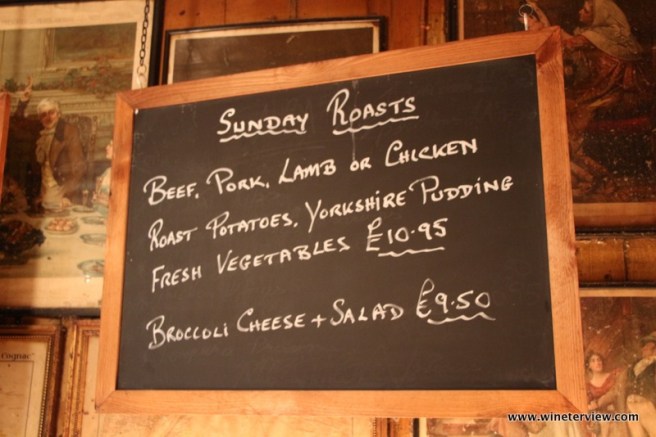 SUNDAY ROASTS
BEEF, PORK, LAMB OR CHICKEN
ROAST POTATOES, YORKSHIRE PUDDING
FRESH VEGETABLES £10.95
BROCCOLI CHEESE + SALAD £9.50
Cognac
www.wineterview.com